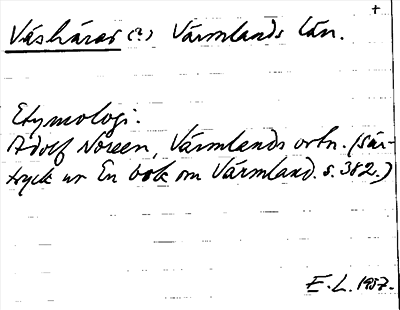 †
Väshärad (?) Värmlands län.
Etymologi.
Adolf Noreen, Värmlands ortn. (sär-
tryck ur En bok om Värmland. s. 382.)
E. L. 1957.